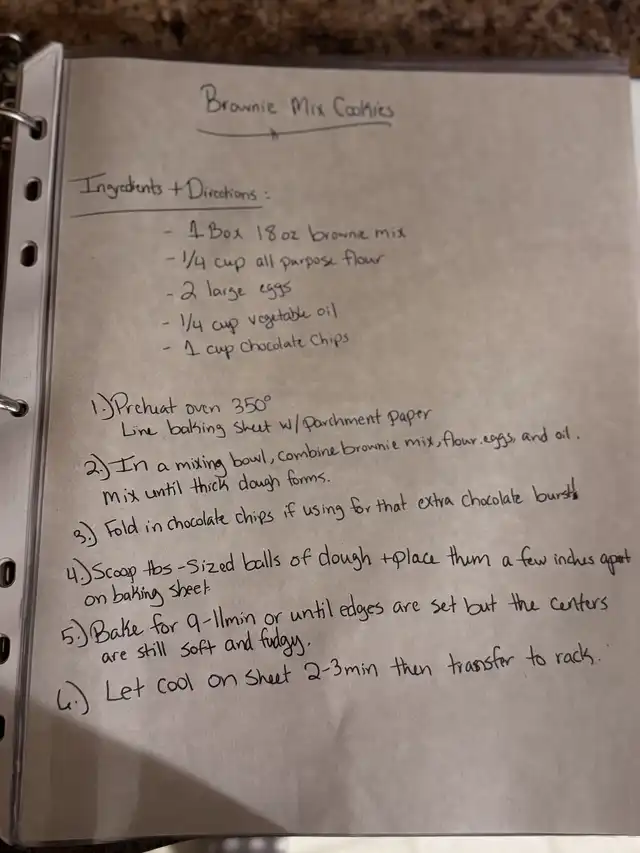 Brownie Mix Cookies
Ingredients + Directions:
- 1 Box 18 oz brownie mix
- 1/4 cup all purpose flour
- 2 large eggs
- 1/4 cup vegetable oil
- 1 cup chocolate chips
1.) Preheat oven 350°
Line baking sheet w/ parchment paper
2.) In a mixing bowl, combine brownie mix, flour, eggs, and oil.
mix until thick dough forms.
3.) Fold in chocolate chips if using for that extra chocolate burst
4.) Scoop tbs-sized balls of dough + place them a few inches apart
on baking sheet.
5.) Bake for 9-11min or until edges are set but the centers
are still soft and fudgy.
6.) Let cool on sheet 2-3min then transfer to rack.